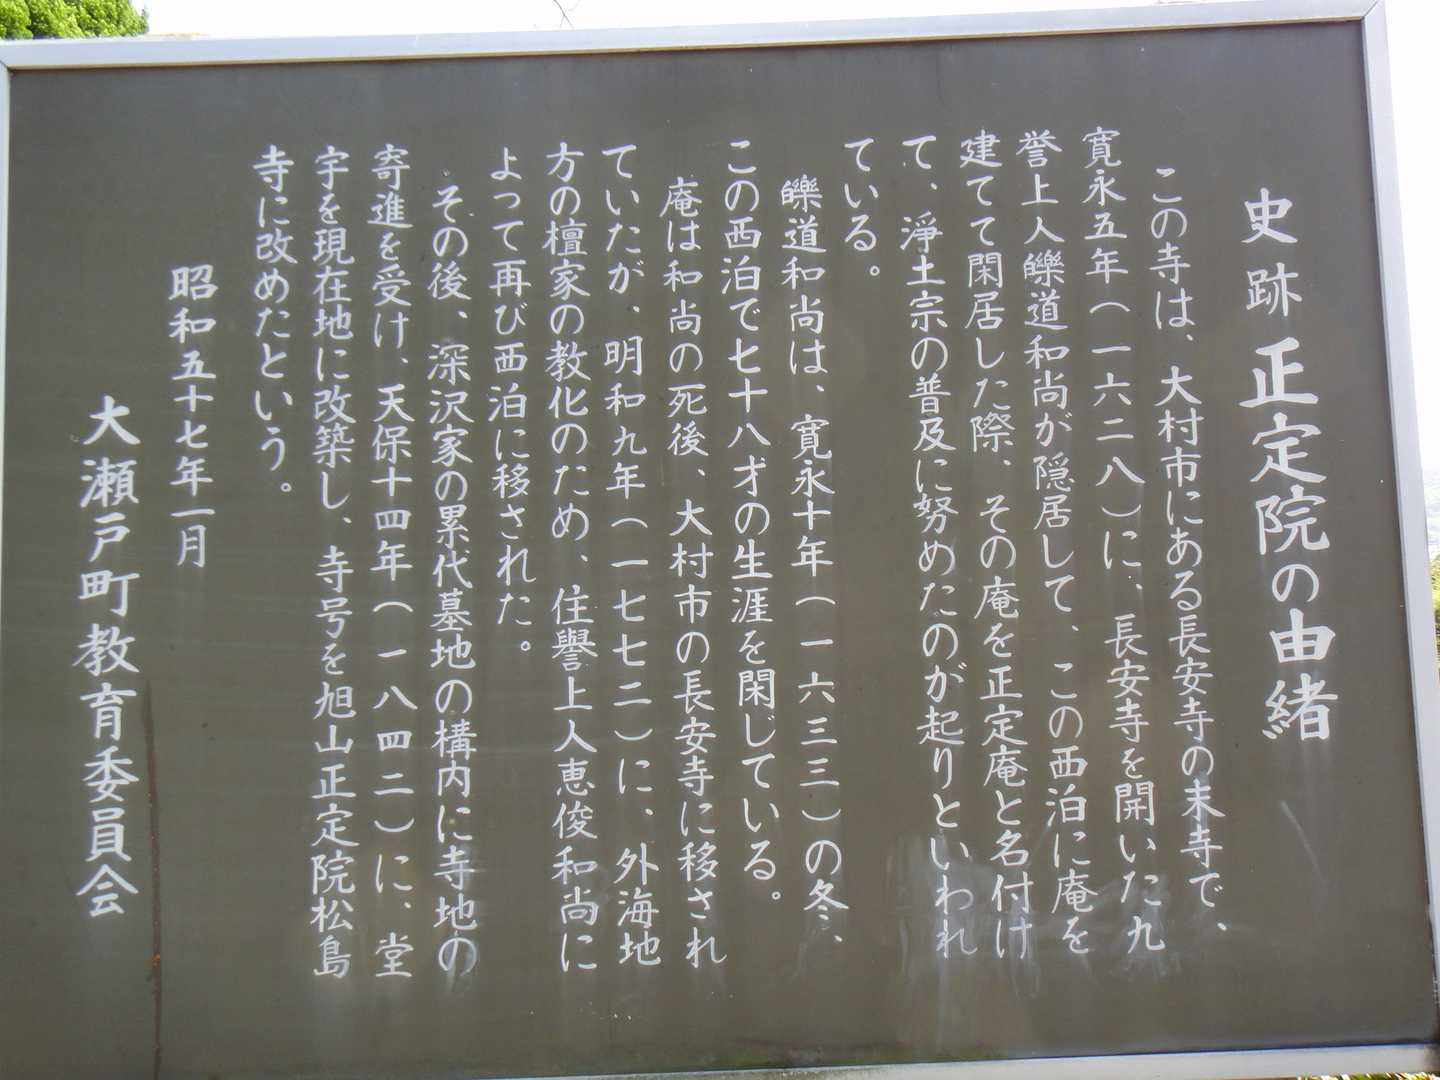 史跡 正定院の由緒
この寺は、大村市にある長安寺の末寺で、
寛永五年(一六二八)に、長安寺を開いた九
誉上人皪道和尚が隠居して、この西泊に庵を
建てて閑居した際、その庵を正定庵と名付け
て、淨土宗の普及に努めたのが起りといわれ
ている。
皪道和尚は、寛永十年(一六三三)の冬、
この西泊で七十八才の生涯を閉じている。
庵は和尚の死後、大村市の長安寺に移され
ていたが、明和九年(一七七二)に、外海地
方の檀家の教化のため、住譽上人恵俊和尚に
よって再び西泊に移された。
その後、深沢家の累代墓地の構内に寺地の
寄進を受け、天保十四年(一八四二)に、堂
宇を現在地に改築し、寺号を旭山正定院松島
寺に改めたという。
昭和五十七年一月
大瀬戸町教育委員会